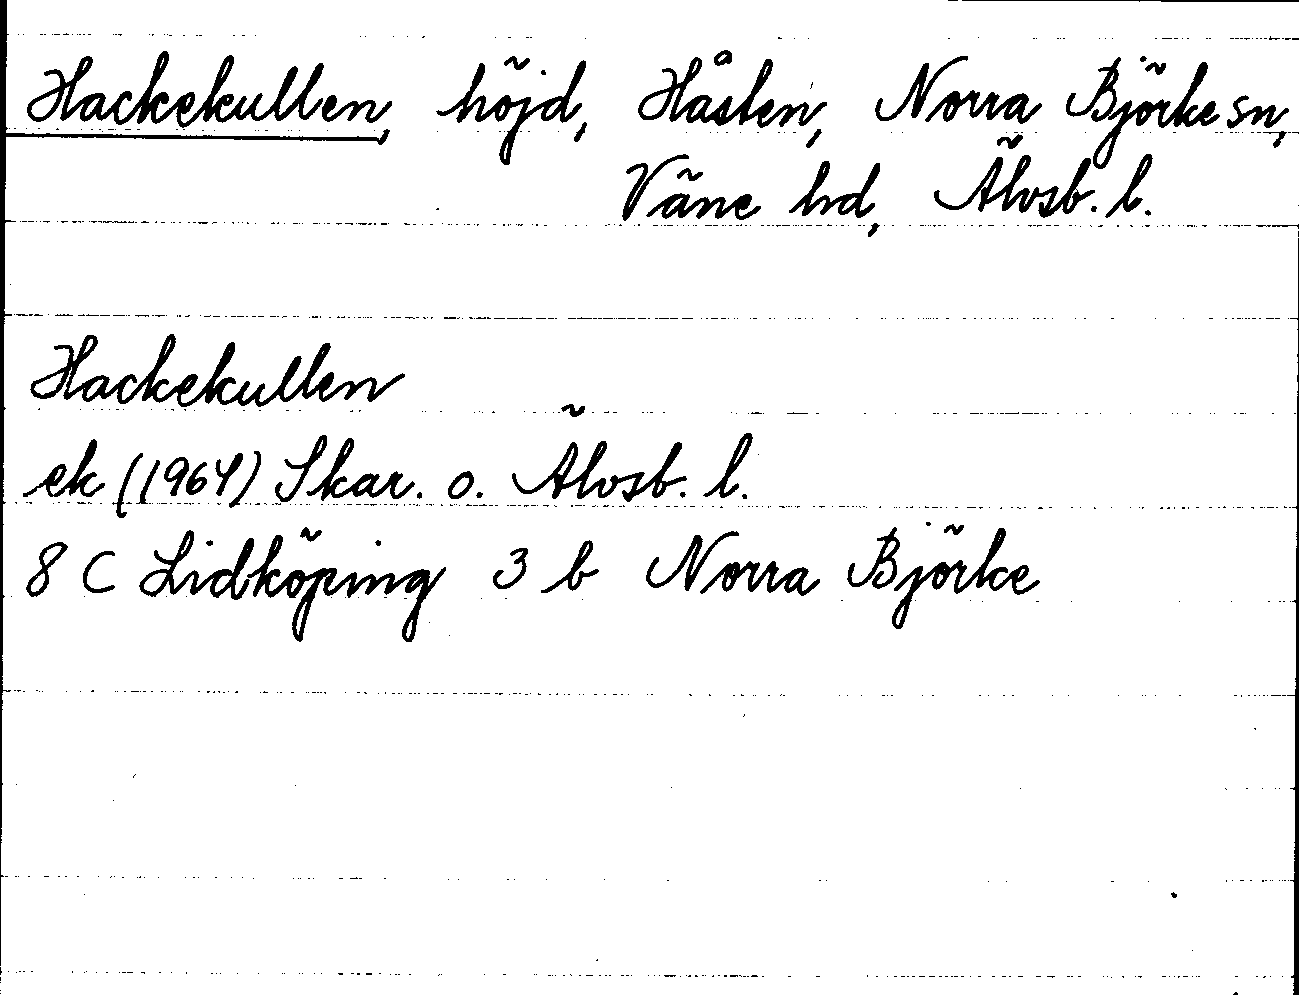 Hackekullen, höjd, Håsten, Norra Björke sn,
Väne hd, Älvsb. l.
Hackekullen
ek (1964) Skar. o. Älvsb. l.
8 C Lidköping 3 b Norra Björke